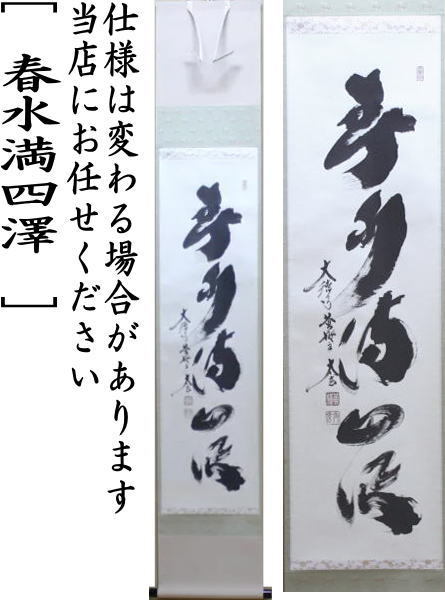 仕様は変わる場合があります
当店にお任せください
[ 春水満四澤 ]
春水満四澤